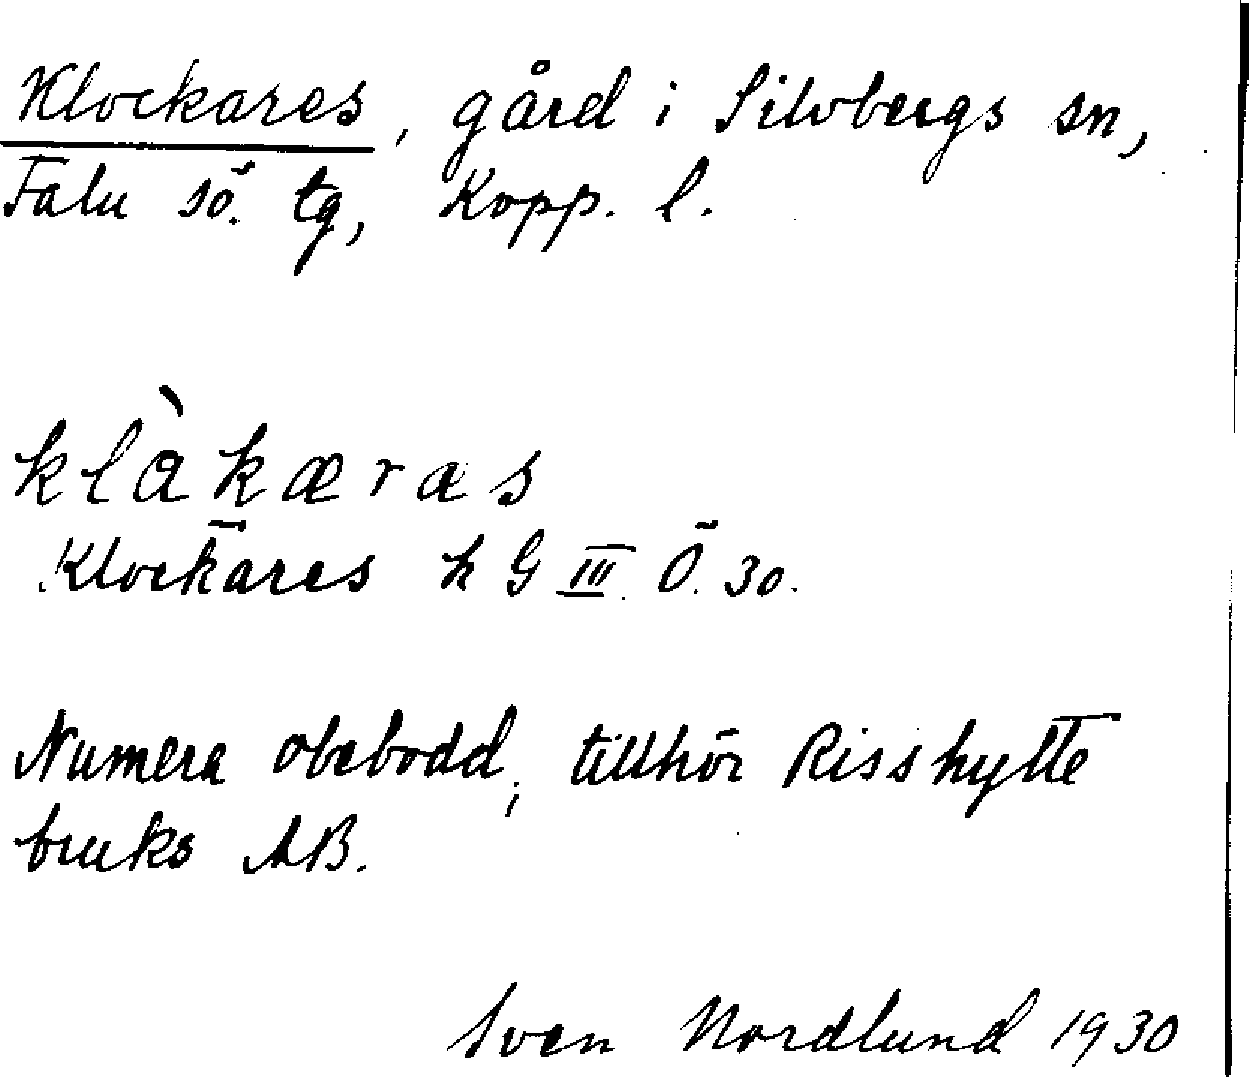 Klockares, gård i Silvbergs sn,
Falu sö. tg, Kopp. l.
klàkæras
Klockares h G III Ö. 30.
Numera obebodd, tillhör Risshytte
bruks AB.
Sven Nordlund 1930